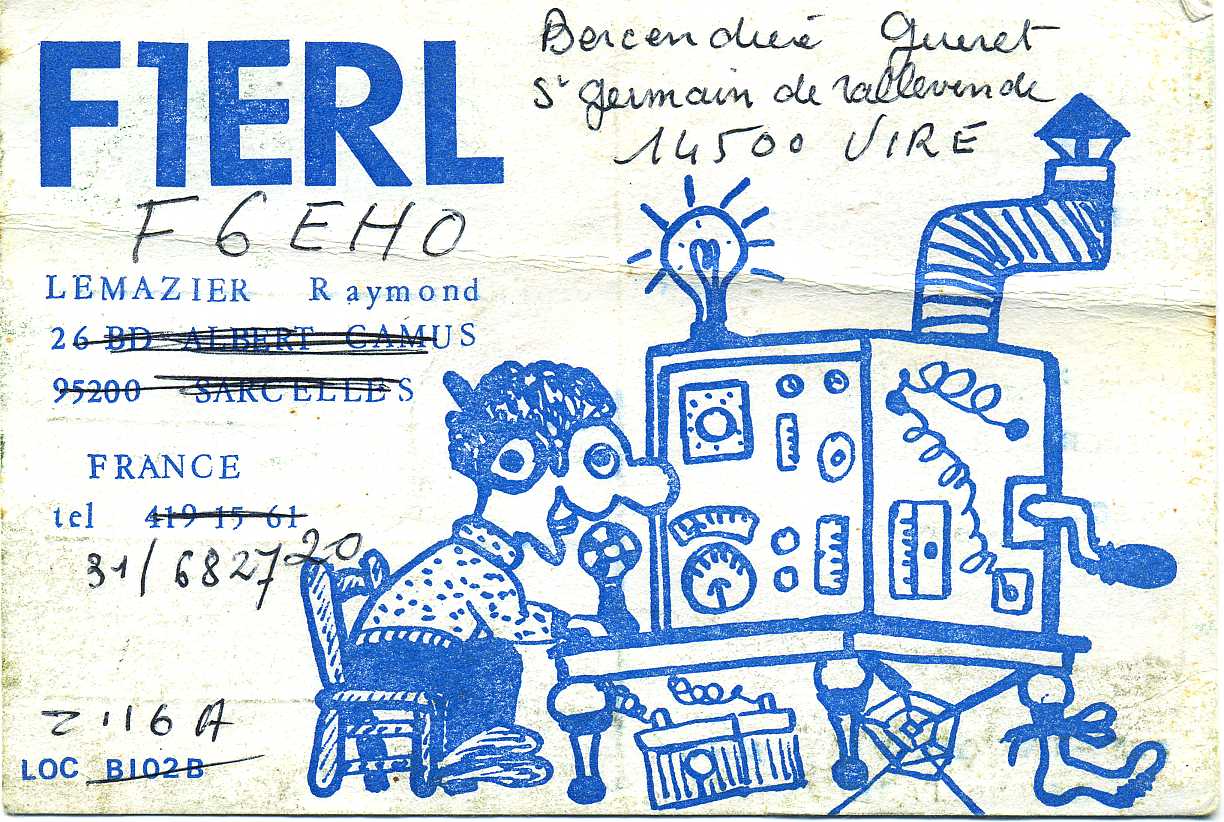 F1ERL
Bercendrié Gueret
St germain de tallevende
14500 VIRE
F6EHO
LEMAZIER Raymond
26 BD ALBERT CAMUS
95200 SARCELLES
FRANCE
tel 419 15 61
31/682720
Z116A
LOC BI02B